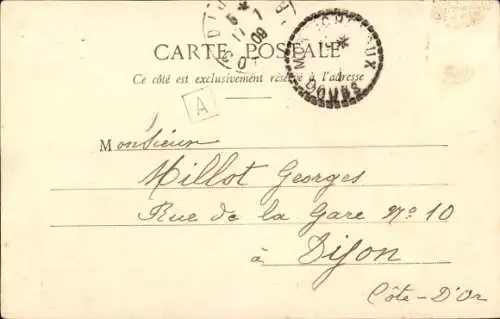 CARTE POSTALE
Ce côté est exclusivement réservé à l'adresse
A
Monsieur
Millot Georges
Rue de la Gare Nº 10
à Dijon
Côte-D'Or
DOUBS